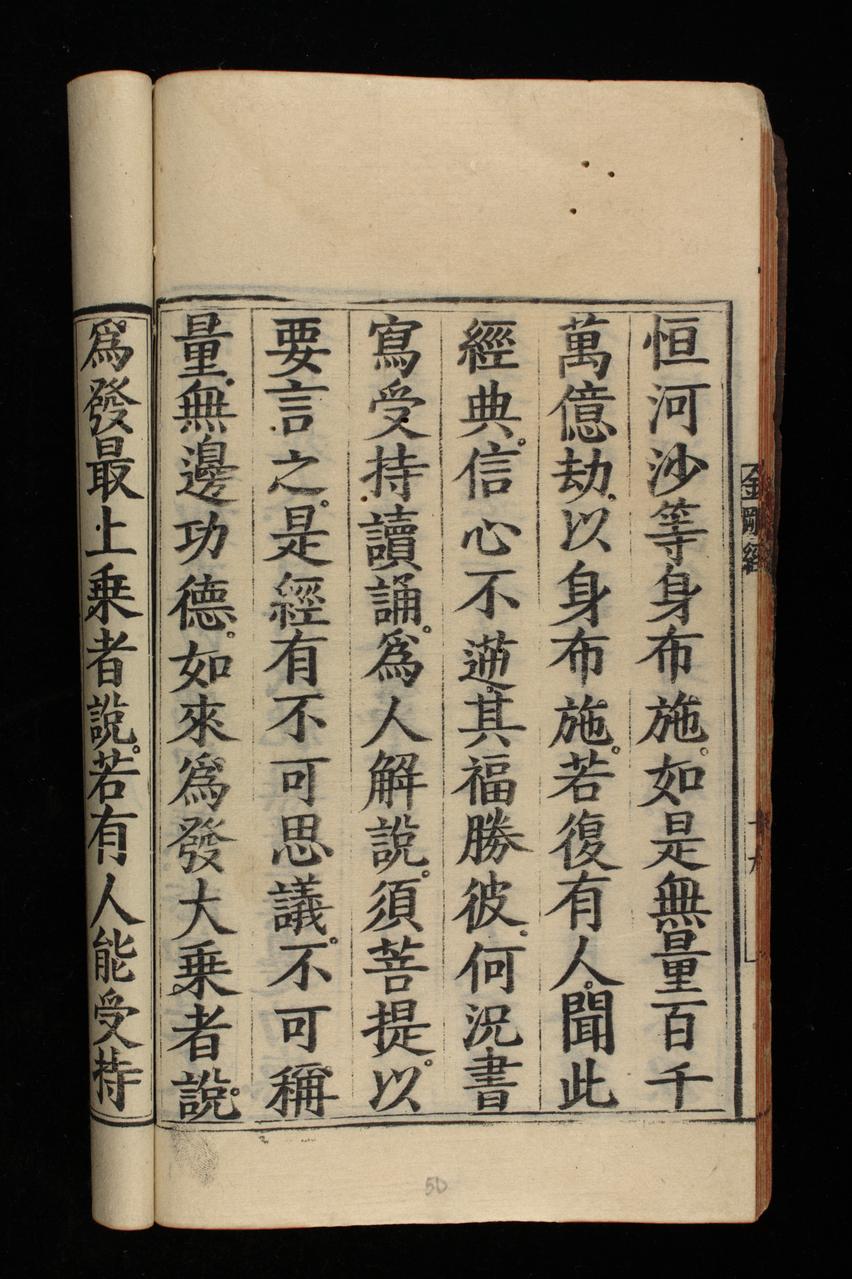 恒河沙等身布施。如是無量百千
萬億劫。以身布施。若復有人。聞此
經典。信心不逆。其福勝彼。何況書
寫受持讀誦。爲人解說。須菩提。以
要言之。是經有不可思議。不可稱
量。無邊功德。如來爲發大乘者說。
爲發最上乘者說。若有人能受持
金剛經
50